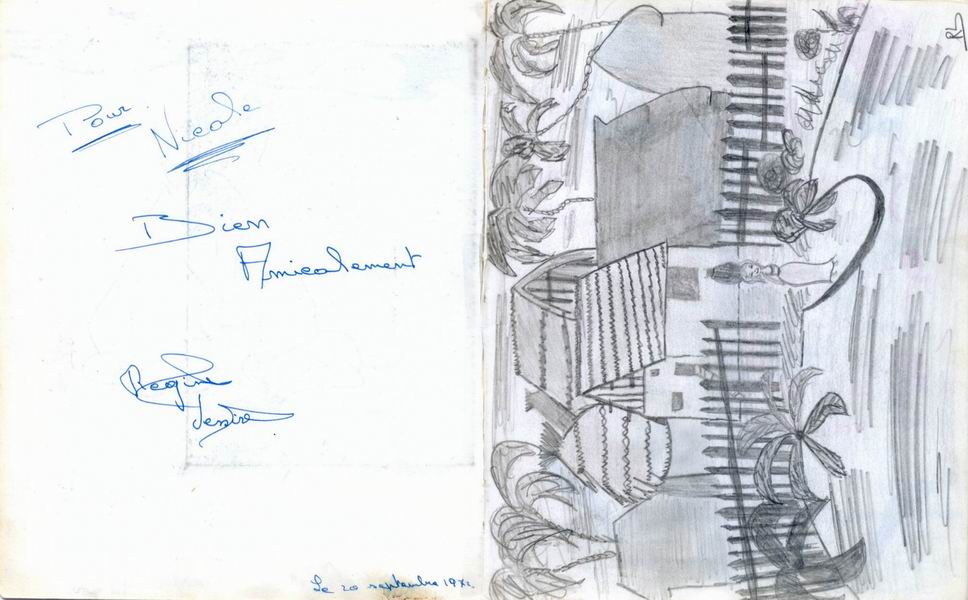 Pour
Nicole
Bien
Amicalement
Regine
Le 20 septembre
RL